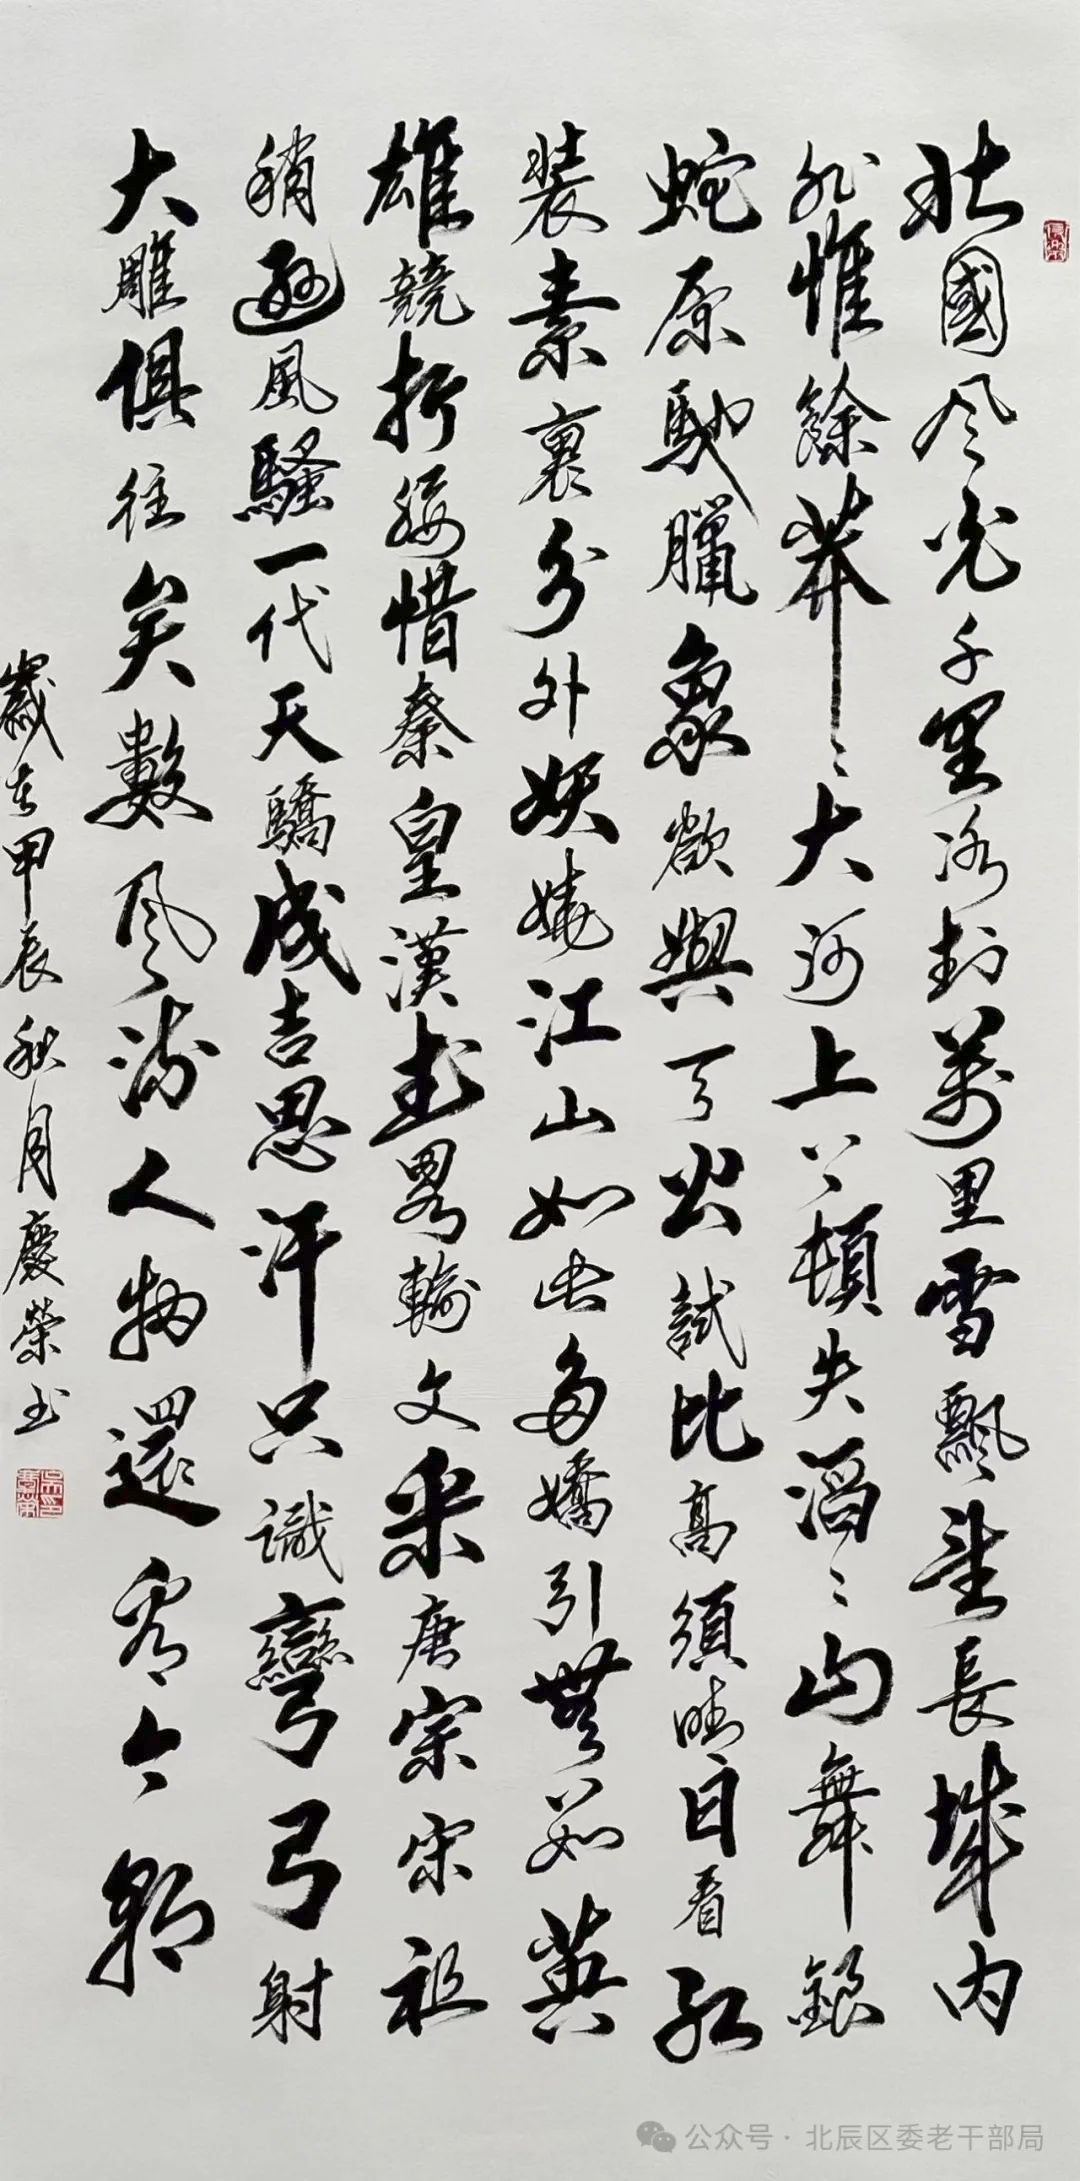 北國风光千里冰封萬里雪飄望長城内
外惟餘莽〻大河上下頓失滔〻山舞銀
蛇原馳臘象欲與天公試比高須晴日看红
装素裹分外妖嬈江山如此多嬌引無数英
雄競折腰惜秦皇漢武畧輸文采唐宗宋祖
稍遜風騷一代天驕成吉思汗只識彎弓射
大雕俱往矣數风流人物還看今朝
歲在甲辰秋月慶榮书
吴印慶榮
公众号·北辰区委老干部局